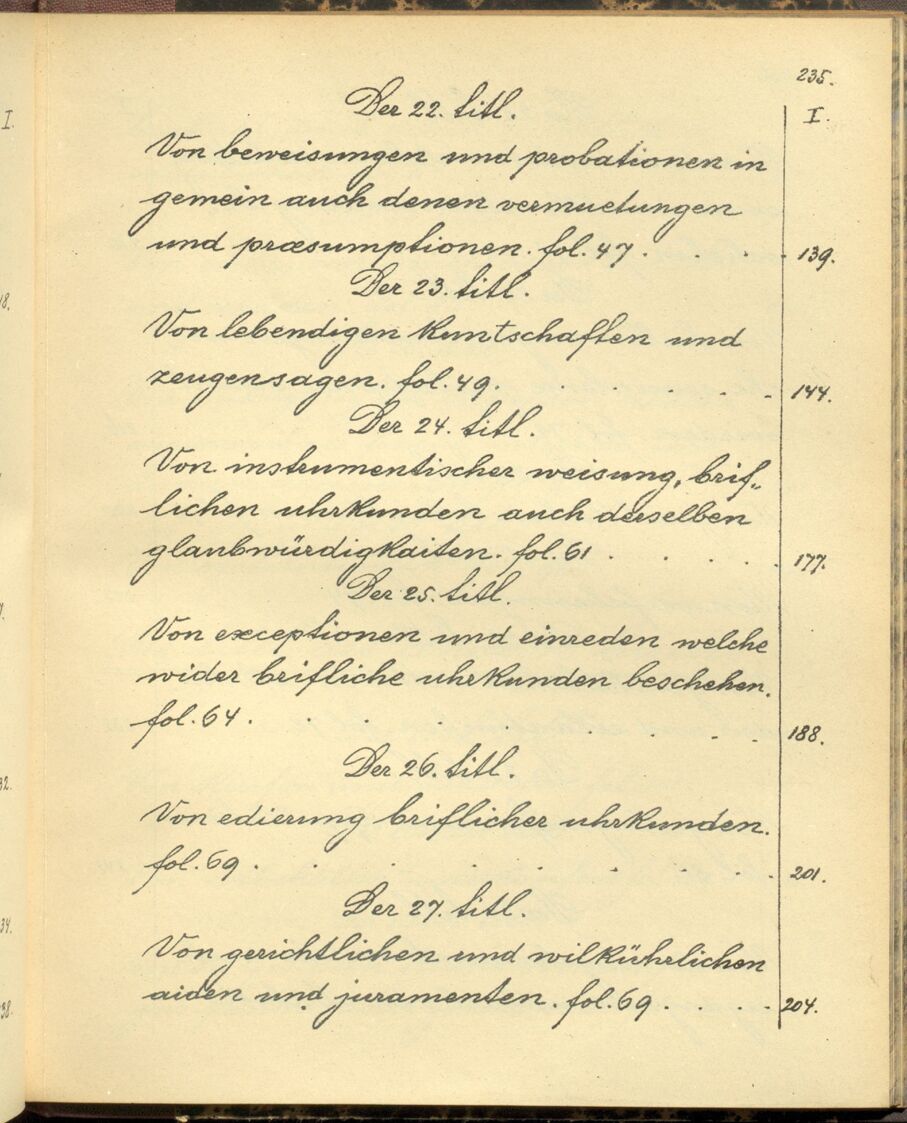 235.
I.
Der 22. titl.
Von beweisungen und probationen in
gemein auch denen vermuetungen
und præsumptionen. fol. 47 . . . . 139.
Der 23. titl.
Von lebendigen kuntschaften und
zeugensagen. fol. 49. . . . . . 144.
Der 24. titl.
Von instrumentischer weisung, brif„
lichen uhrkunden auch derselben
glaubwürdigkaiten. fol. 61 . . . . . 177.
Der 25. titl.
Von exceptionen und einreden welche
wider brifliche uhrkunden beschehen.
fol. 64 . . . . . . . 188.
Der 26. titl.
Von edierung briflicher uhrkunden.
fol. 69 . . . . . . . . 201.
Der 27. titl.
Von gerichtlichen und wilkührlichen
aiden und juramenten. fol. 69 . . . . 204.
I.
18.
32.
34.
38.